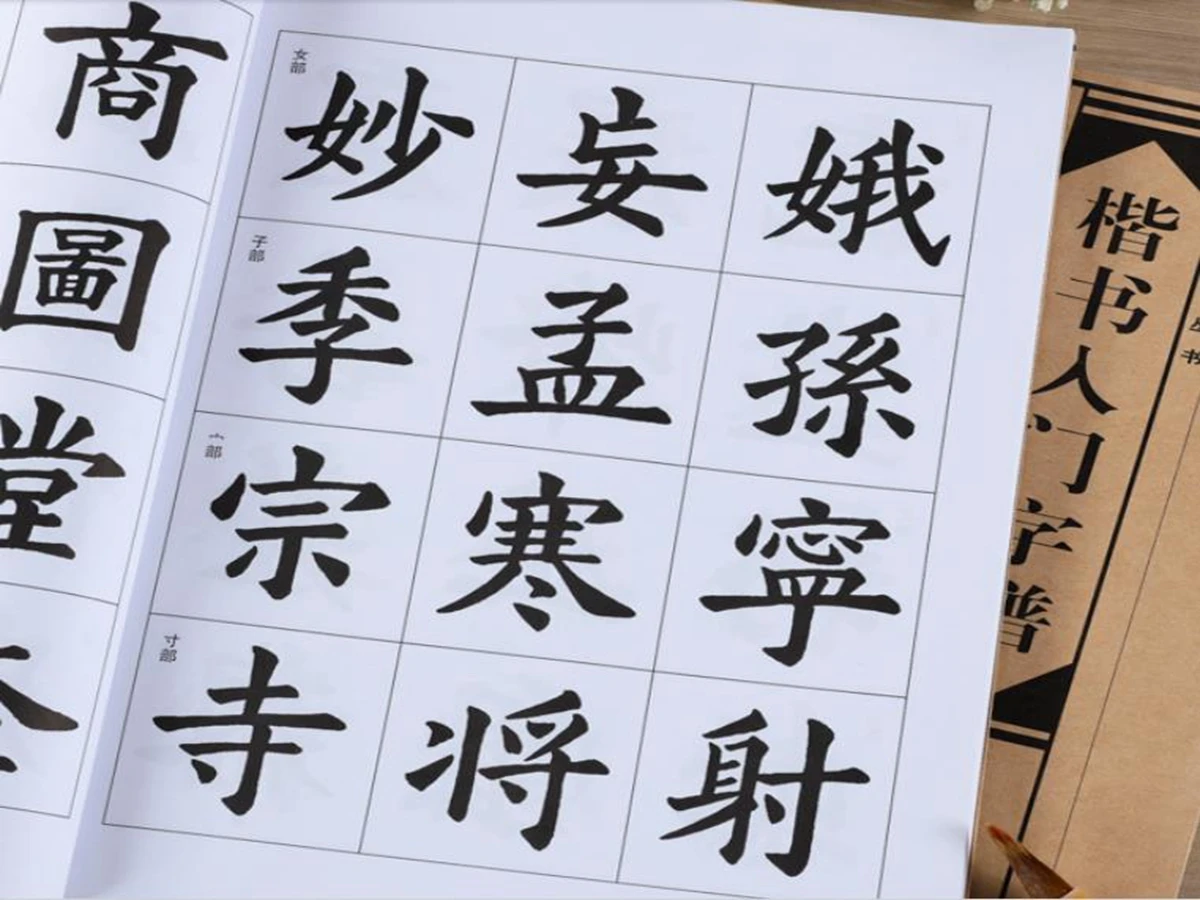 商
圖
堂
女部
妙 妄 娥
子部
季 孟 孫
宀部
宗 寒 寧
寸部
寺 将 射
楷书入门字谱